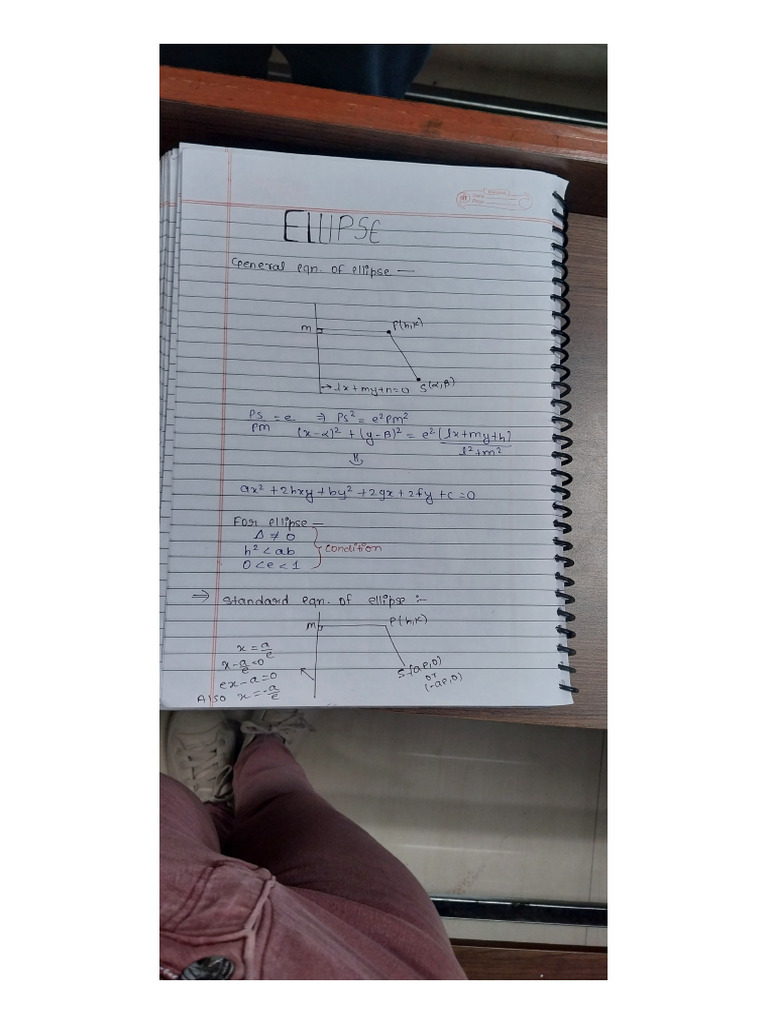 ELLIPSE
General eqn. of ellipse —
m P(h,k)
→ lx+my+n=0 S(α,β)
PS/PM = e ⇒ PS² = e²PM²
(x-α)² + (y-β)² = e² (lx+my+n)/l²+m²
⇓
ax² + 2hxy + by² + 2gx + 2fy + c = 0
For ellipse —
Δ ≠ 0
h² < ab } condition
0 < e < 1
⇒ Standard eqn. of ellipse :-
m P(h,k)
x = a/e
x - a/e = 0 S(ae,0)
or
ex - a = 0 (-ae,0)
Also x = -a/e